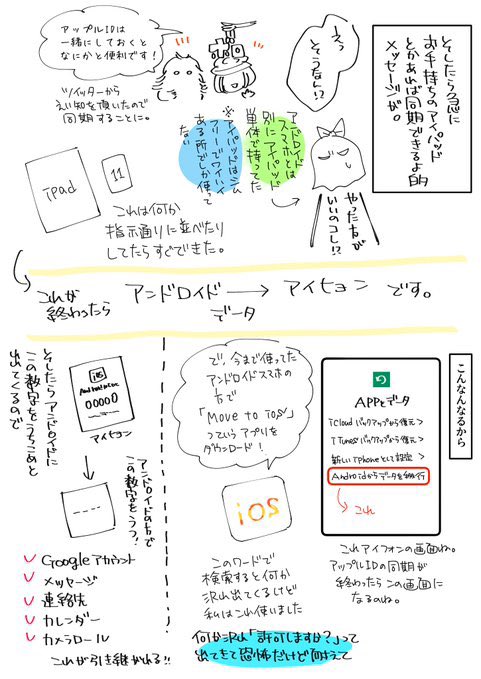 そしたら急に
お手持ちのアイパッド
とかあれば同期できるよ的
メッセージが。
えっ
そうなん!?
アップルIDは
一緒にしておくと
なにかと便利です!
ツイッターから
えい知を頂いたので
同期することに。
アンドロイド
スマホとは
別にアイパッド
単体で持ってた
※アイパッドはシム
フリーでワイハイ
ある所でしか使って
ない
やった方が
いいのコレ!?
iPad
11
これは何か
指示通りに並べたり
してたらすぐできた。
これが
終わったら
アンドロイド → アイヒョン です。
データ
こんなんなるから
APPとデータ
iCloudバックアップから復元 >
iTunesバックアップから復元 >
新しいiPhoneとして設定 >
Androidからデータを移行
これ
これアイフォンの画面ね。
アップルIDの同期が
終わったらこの画面に
なるのね。
で、今まで使ってた
アンドロイドスマホの
方で
「Move to iOS」
っていうアプリを
ダウンロード!
iOS
このワードで
検索すると何か
沢山出てくるけど
私はこれ使いました
何か沢山「許可しますか?」って
出てきて恐怖だけど耐えて
iOS
00000
アイヒョン
そしたらアンドロイドに
この数字をうちこめと
出てくるので
アンドロイドの方で
この数字をうつ!
----
Googleアカウント
メッセージ
連絡先
カレンダー
カメラロール
これが引き継がれる!!